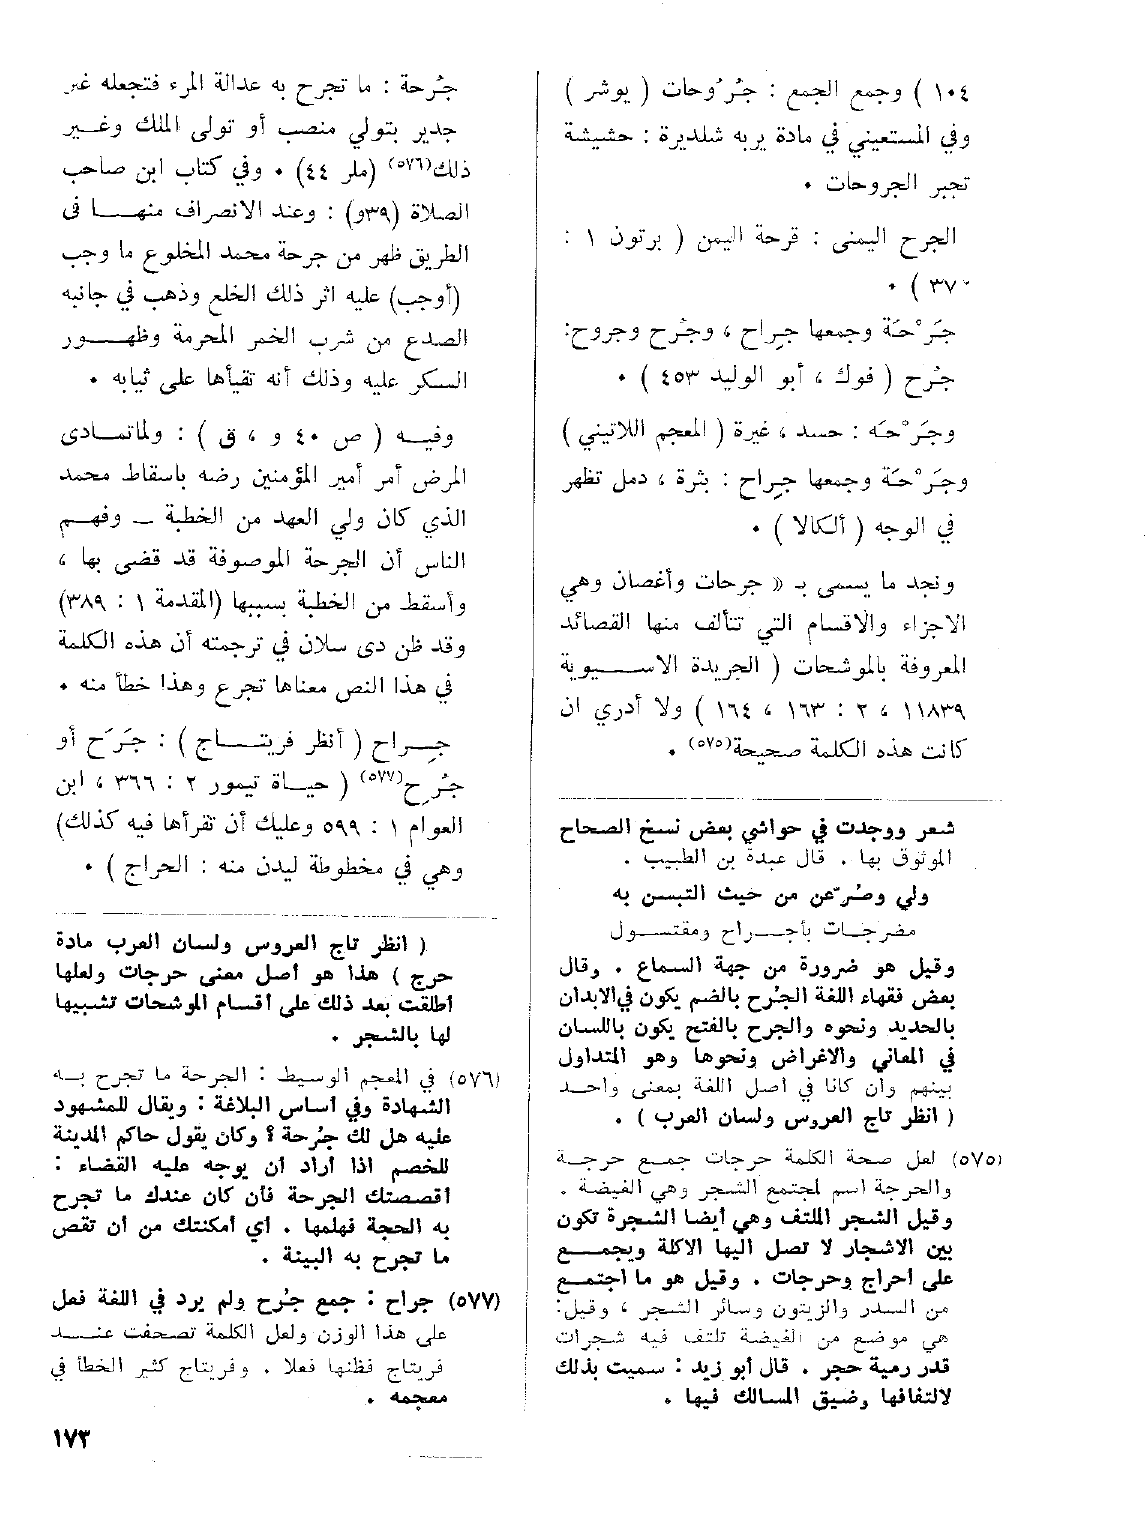 ١٠٤ ) وجمع الجمع : جُرُوحات ( بوشر )
وفي المستعيني في مادة يربه شلديرة : حشيشة
تجبر الجروحات ٠
الجرح اليمنى : قرحة اليمن ( برتون ١ :
٣٧ ) ٠
جَرْحَة وجمعها جِراح ، وجُرح وجروح:
جُرح ( فوك ، أبو الوليد ٤٥٣ ) ٠
وجَرْحَه : حسد ، غيرة ( المعجم اللاتيني )
وجَرْحَة وجمعها جِراح : بثرة ، دمل تظهر
في الوجه ( ألكالا ) ٠
ونجد ما يسمى بـ « جرحات وأغصان وهي
الاجزاء والاقسام التي تتألف منها القصائد
المعروفة بالموشحات ( الجريدة الاسيوية
١١٨٣٩ ، ٢ : ١٦٣ ، ١٦٤ ) ولا أدري ان
كانت هذه الكلمة صحيحة(٥٧٥) ٠
شعر ووجدت في حواشي بعض نسخ الصحاح
الموثوق بها ٠ قال عبدة بن الطبيب ٠
ولي وصُرّعن من حيث التبسن به
مضرجات بأجراح ومقتول
وقيل هو ضرورة من جهة السماع ٠ وقال
بعض فقهاء اللغة الجُرح بالضم يكون في الابدان
بالحديد ونحوه والجرح بالفتح يكون باللسان
في المعاني والاغراض ونحوها وهو المتداول
بينهم وان كانا في أصل اللغة بمعنى واحد
( انظر تاج العروس ولسان العرب ) ٠
(٥٧٥) لعل صحة الكلمة حرجات جمع حرجة
والحرجة اسم لمجتمع الشجر وهي الغيضة ٠
وقيل الشجر الملتف وهي أيضا الشجرة تكون
بين الاشجار لا تصل اليها الاكلة ويجمع
على أحراج وحرجات ٠ وقيل هو ما اجتمع
من السدر والزيتون وسائر الشجر ، وقيل:
هي موضع من الغيضة تلتف فيه شجرات
قدر رمية حجر ٠ قال أبو زيد : سميت بذلك
لالتفافها وضيق المسالك فيها ٠
جُرحة : ما تجرح به عدالة المرء فتجعله غير
جدير بتولي منصب أو تولى الملك وغير
ذلك(٥٧٦) (ملر ٤٤) ٠ وفي كتاب ابن صاحب
الصلاة (٣٩و) : وعند الانصراف منها في
الطريق ظهر من جرحة محمد المخلوع ما وجب
(أوجب) عليه اثر ذلك الخلع وذهب في جانبه
الصدع من شرب الخمر المحرمة وظهور
السكر عليه وذلك أنه تقيأها على ثيابه ٠
وفيه ( ص ٤٠ و ، ق ) : ولماتمادى
المرض أمر أمير المؤمنين رضه باسقاط محمد
الذي كان ولي العهد من الخطبة ــ وفهم
الناس أن الجرحة الموصوفة قد قضى بها ،
وأسقط من الخطبة بسببها (المقدمة ١ : ٣٨٩)
وقد ظن دى سلان في ترجمته أن هذه الكلمة
في هذا النص معناها تجرع وهذا خطأ منه ٠
جِراح ( أنظر فريتاج ) : جَرَح أو
جُرح(٥٧٧) ( حياة تيمور ٢ : ٣٦٦ ، ابن
العوام ١ : ٥٩٩ وعليك أن تقرأها فيه كذلك)
وهي في مخطوطة ليدن منه : الحراج ) ٠
( انظر تاج العروس ولسان العرب مادة
حرج ) هذا هو أصل معنى حرجات ولعلها
أطلقت بعد ذلك على أقسام الموشحات تشبيها
لها بالشجر ٠
(٥٧٦) في المعجم الوسيط : الجرحة ما تجرح به
الشهادة وفي أساس البلاغة : ويقال للمشهود
عليه هل لك جُرحة ؟ وكان يقول حاكم المدينة
للخصم اذا أراد أن يوجه عليه القضاء :
أقصصتك الجرحة فأن كان عندك ما تجرح
به الحجة فهلمها ٠ أي أمكنتك من أن تقص
ما تجرح به البينة ٠
(٥٧٧) جراح : جمع جُرح ولم يرد في اللغة فعل
على هذا الوزن ولعل الكلمة تصحفت عند
فريتاج فظنها فعلا ٠ وفريتاج كثير الخطأ في
معجمه ٠
١٧٣